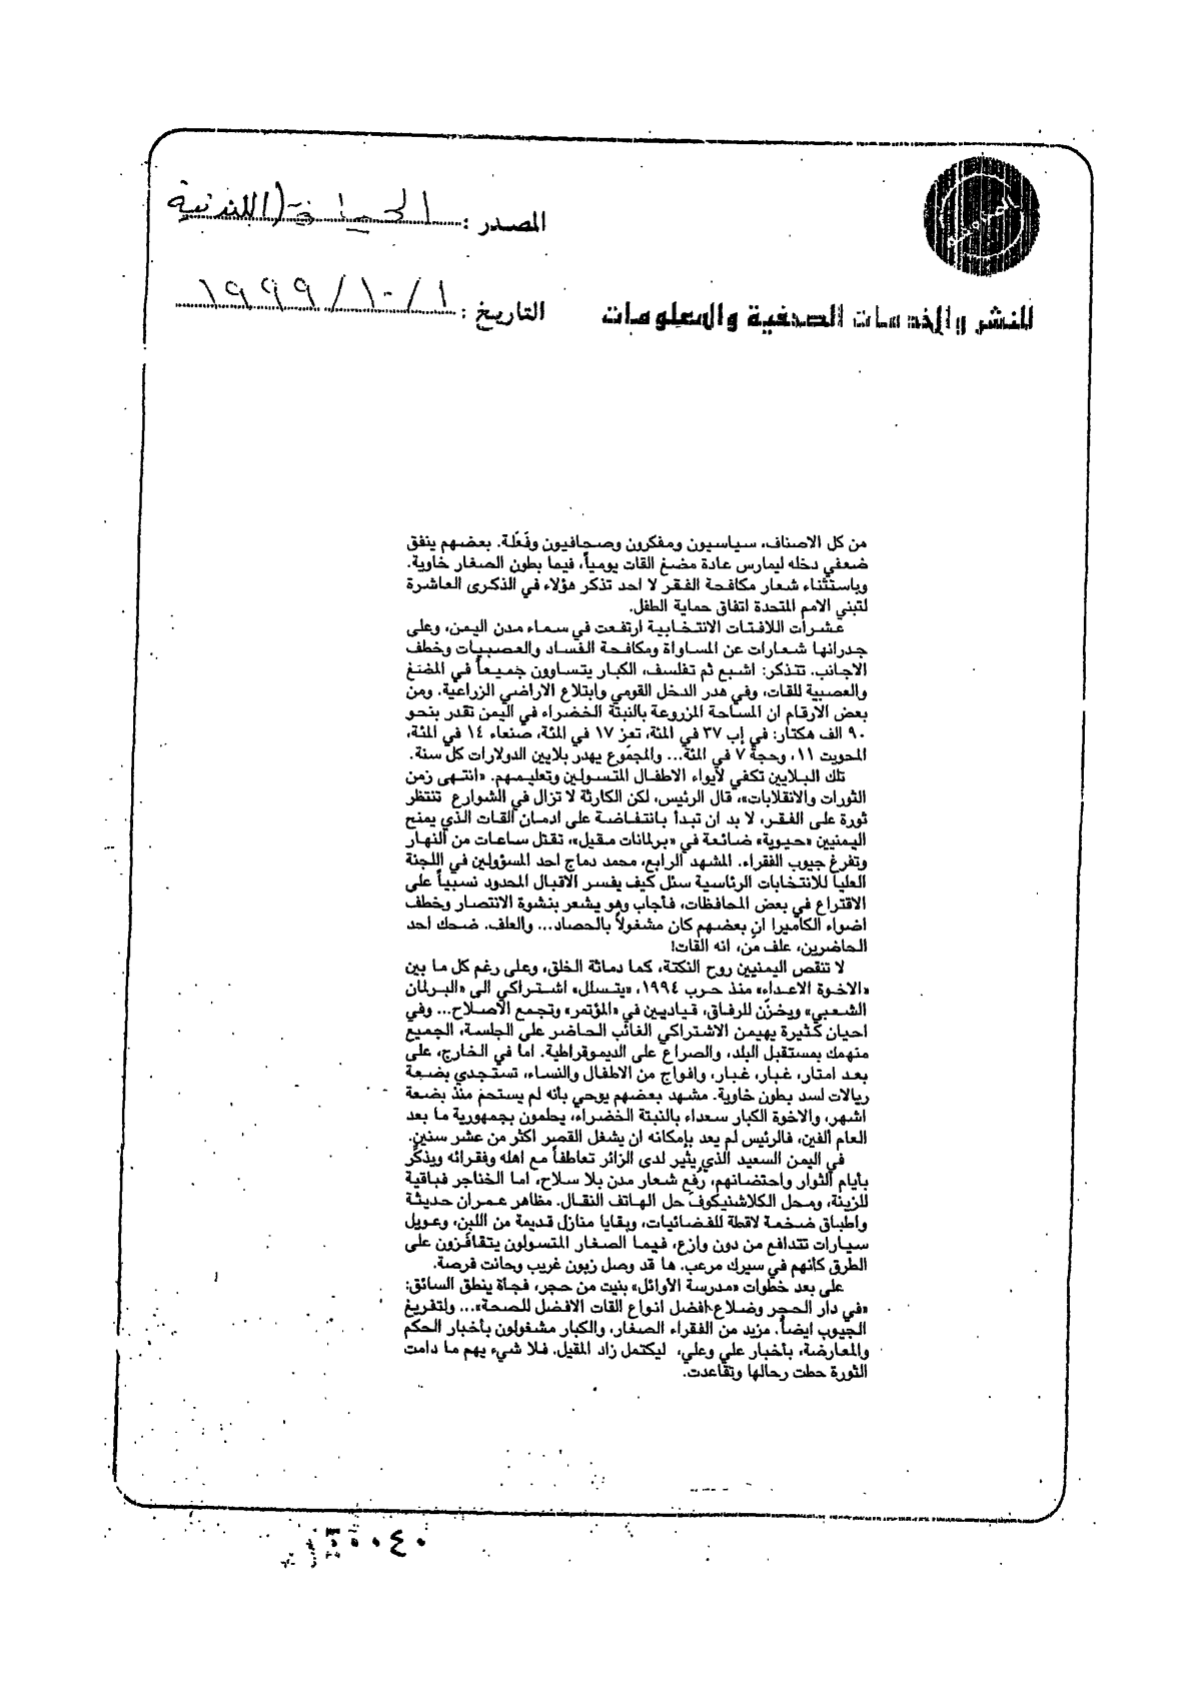 المصدر : الحياة (اللندنية
التاريخ : ١٩٩٩/١٠/١
للنشر والخدمات الصحفية والمعلومات
من كل الاصناف، سياسيون ومفكرون وصحافيون وفَعَلة. بعضهم ينفق
ضعفي دخله ليمارس عادة مضغ القات يومياً، فيما بطون الصغار خاوية.
وباستثناء شعار مكافحة الفقر لا احد تذكر هؤلاء في الذكرى العاشرة
لتبني الامم المتحدة اتفاق حماية الطفل.
عشرات اللافتات الانتخابية ارتفعت في سماء مدن اليمن، وعلى
جدرانها شعارات عن المساواة ومكافحة الفساد والعصبيات وخطف
الاجانب. تتذكر: اشبع ثم تفلسف، الكبار يتساوون جميعاً في المضغ
والعصبية للقات، وفي هدر الدخل القومي وابتلاع الاراضي الزراعية. ومن
بعض الارقام ان المساحة المزروعة بالنبتة الخضراء في اليمن تقدر بنحو
٩٠ الف هكتار: في إب ٣٧ في المئة، تعز ١٧ في المئة، صنعاء ١٤ في المئة،
المحويت ١١، وحجة ٧ في المئة... والمجموع يهدر بلايين الدولارات كل سنة.
تلك البلايين تكفي لايواء الاطفال المتسولين وتعليمهم. «انتهى زمن
الثورات والانقلابات»، قال الرئيس، لكن الكارثة لا تزال في الشوارع تنتظر
ثورة على الفقر، لا بد ان تبدأ بانتفاضة على ادمان القات الذي يمنح
اليمنيين «حيوية» ضائعة في «برلمانات مقيل»، تقتل ساعات من النهار
وتفرغ جيوب الفقراء. المشهد الرابع، محمد دماج احد المسؤولين في اللجنة
العليا للانتخابات الرئاسية سئل كيف يفسر الاقبال المحدود نسبياً على
الاقتراع في بعض المحافظات، فأجاب وهو يشعر بنشوة الانتصار وخطف
اضواء الكاميرا ان بعضهم كان مشغولاً بالحصاد... والعلف. ضحك احد
الحاضرين، علف مَن، انه القات!
لا تنقص اليمنيين روح النكتة، كما دماثة الخلق، وعلى رغم كل ما بين
«الاخوة الاعداء» منذ حرب ١٩٩٤، «يتسلل» اشتراكي الى «البرلمان
الشعبي» ويخزّن للرفاق، قياديين في «المؤتمر» وتجمع الاصلاح... وفي
احيان كثيرة يهيمن الاشتراكي الغائب الحاضر على الجلسة، الجميع
منهمك بمستقبل البلد، والصراع على الديموقراطية. اما في الخارج، على
بعد امتار، غبار، غبار، وافواج من الاطفال والنساء، تستجدي بضعة
ريالات لسد بطون خاوية. مشهد بعضهم يوحي بأنه لم يستحم منذ بضعة
اشهر، والاخوة الكبار سعداء بالنبتة الخضراء، يحلمون بجمهورية ما بعد
العام الفين، فالرئيس لم يعد بإمكانه ان يشغل القصر اكثر من عشر سنين.
في اليمن السعيد الذي يثير لدى الزائر تعاطفاً مع اهله وفقرائه ويذكّر
بأيام الثوار واحتضانهم، رُفع شعار مدن بلا سلاح، اما الخناجر فباقية
للزينة، ومحل الكلاشنيكوف حل الهاتف النقال. مظاهر عمران حديثة
واطباق ضخمة لاقطة للفضائيات، وبقايا منازل قديمة من اللبن، وعويل
سيارات تتدافع من دون وازع، فيما الصغار المتسولون يتقافزون على
الطرق كأنهم في سيرك مرعب. ها قد وصل زبون غريب وحانت فرصة.
على بعد خطوات «مدرسة الأوائل» بنيت من حجر، فجأة ينطق السائق:
«في دار الحجر وضلاع افضل انواع القات الافضل للصحة»... ولتفريغ
الجيوب ايضاً. مزيد من الفقراء الصغار، والكبار مشغولون بأخبار الحكم
والمعارضة، بأخبار علي وعلي، ليكتمل زاد المقيل. فلا شيء يهم ما دامت
الثورة حطت رحالها وتقاعدت.